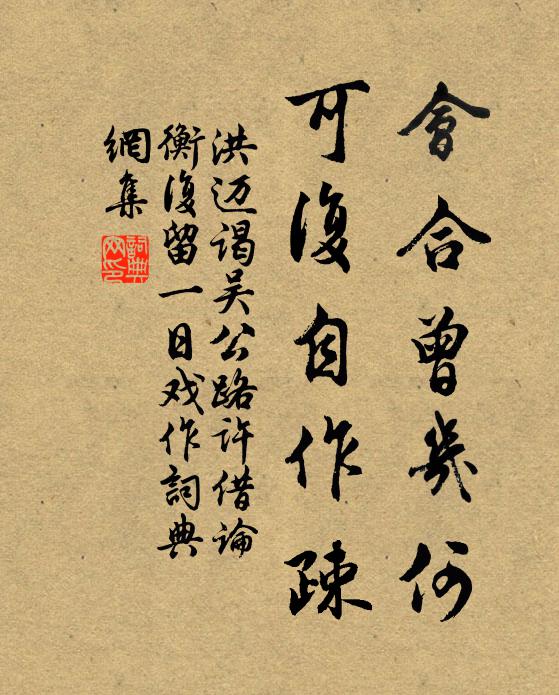 會合曾幾何
可復自作疎
洪迈谒吴公路许借論
衡復留一日戏作詞典
網集
詞典
网印